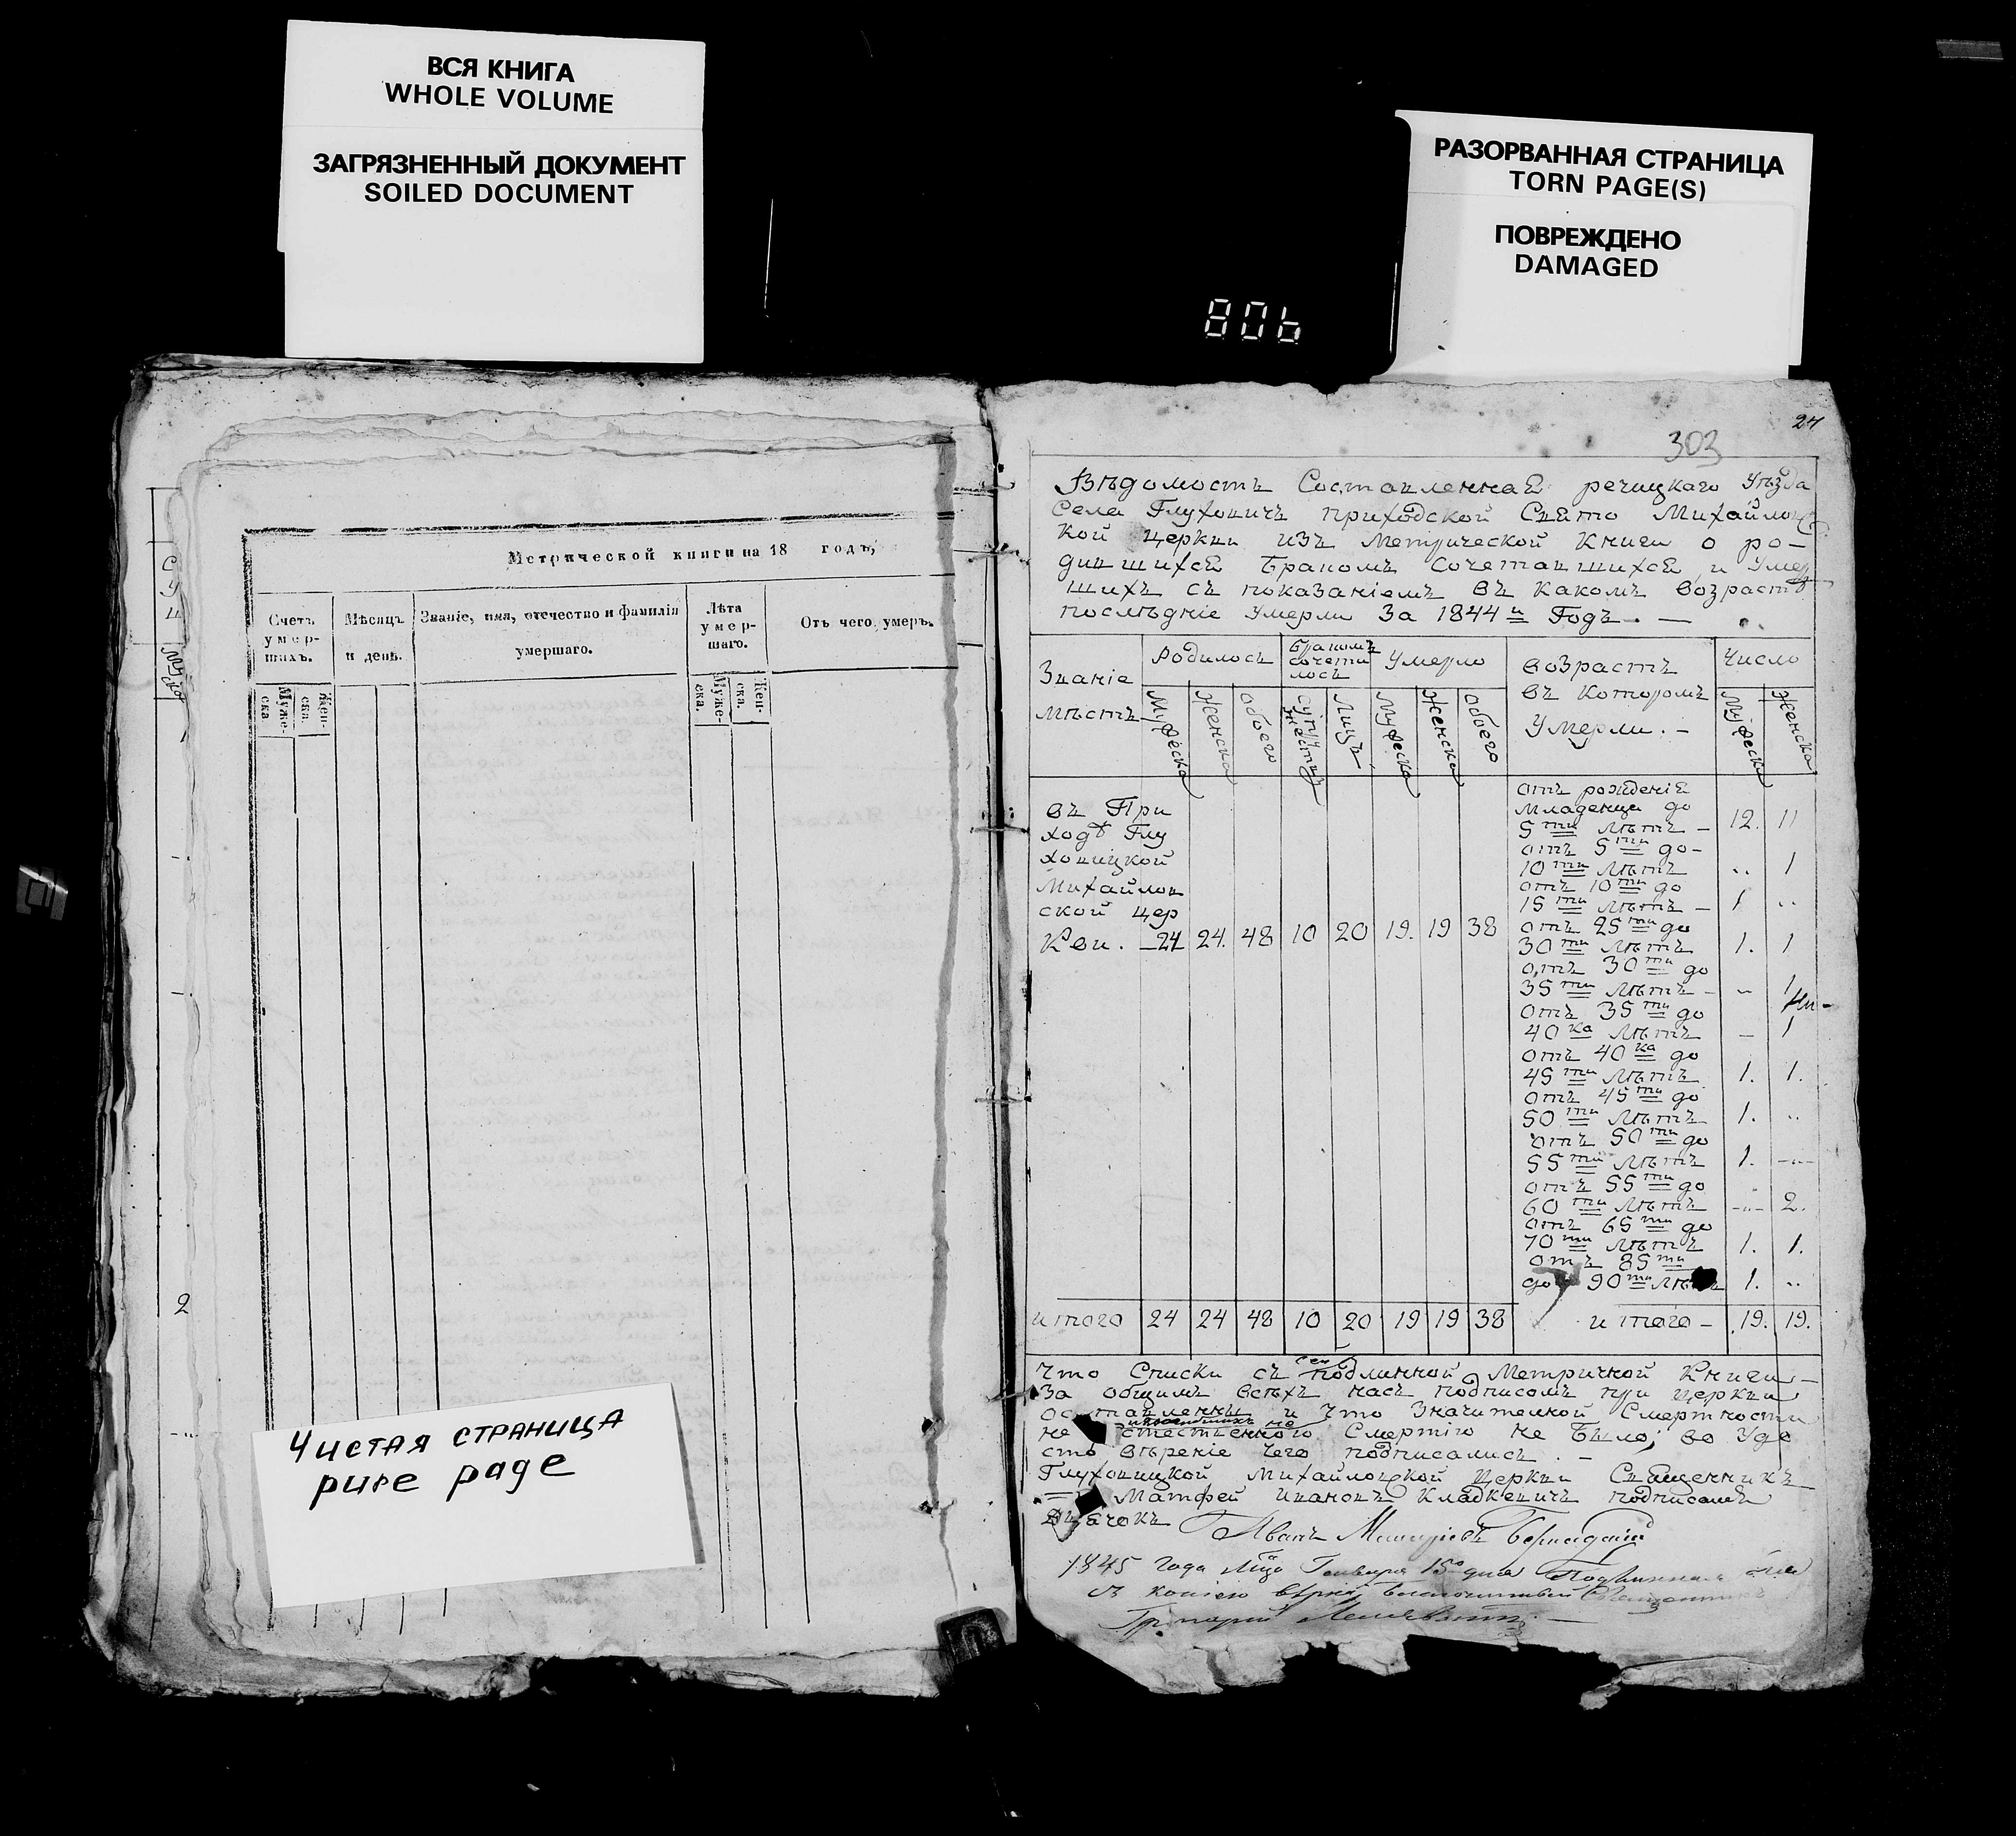 ВСЯ КНИГА
WHOLE VOLUME
ЗАГРЯЗНЕННЫЙ ДОКУМЕНТ
SOILED DOCUMENT
РАЗОРВАННАЯ СТРАНИЦА
TORN PAGE(S)
ПОВРЕЖДЕНО
DAMAGED
806
Метрической книги на 18 годъ,
Счетъ умер-шихъ.
Муже-ска.
Жен-ска.
Мѣсяцъ и день.
Званіе, имя, отечество и фамилія умершаго.
Лѣта умер-шаго.
Муже-ска.
Жен-ска.
Отъ чего умеръ.
2
Чистая страница
pure page
24
303
Вѣдомость Составленная речицкаго Уѣзда
Села Глуховичъ приходской Свято Михайловс
кой церкви изъ Метрической Книги о ро-
дившихся Бракомъ Сочетавшихся и Умер
шихъ съ показаніемъ въ какомъ возрастѣ
послѣдніе Умерли За 1844 й Годъ. —
Званіе мѣстъ
Родилось
Бракомъ сочетилось
Умерло
возрастъ въ которомъ Умерли. -
Число
Мужеска
Женска
Обоего
супружествъ
Лицъ
Мужеска
Женска
Обоего
Мужеска
Женска
въ При
ходѣ Глу
ховицкой
Михайлов
ской цер
Кви. — 24 24. 48 10 20 19. 19 38
отъ рожденія
Младенца до
5 ти лѣтъ - 12. 11
отъ 5 ти до -
10 ти лѣтъ .. 1
отъ 10 ти до
15 ти лѣтъ - 1 ..
отъ 25 ти до
30 ти лѣтъ 1. 1
отъ 30 ти до
35 ти лѣтъ - .. 1
отъ 35 ти до
40 ка лѣтъ - 1
отъ 40 ка до
45 ти лѣтъ 1. 1.
отъ 45 ти до
50 ти лѣтъ 1. ..
отъ 50 ти до
55 ти лѣтъ 1. -..-
отъ 55 ти до
60 ти лѣтъ -..- 2.
отъ 65 ти до
70 ти лѣтъ 1. 1.
отъ 85 ти
до 90 ти 1. ..
итого 24 24 48 10 20 19 19 38 итого - 19. 19.
Что Списки съ подлинной Метричной Книги -
За общимъ всѣхъ насъ подписомъ при церкви
и что Значителной Смертности
не Смертію не Было; во Удо
стовѣреніе чего подписались. -
Глуховицкой Михайловской Церкви Священникъ
Матфей Ивановъ Кладкевичъ подписался
Иванъ
1845 года Генваря 15 дня
съ копіею вѣрна
Григорій